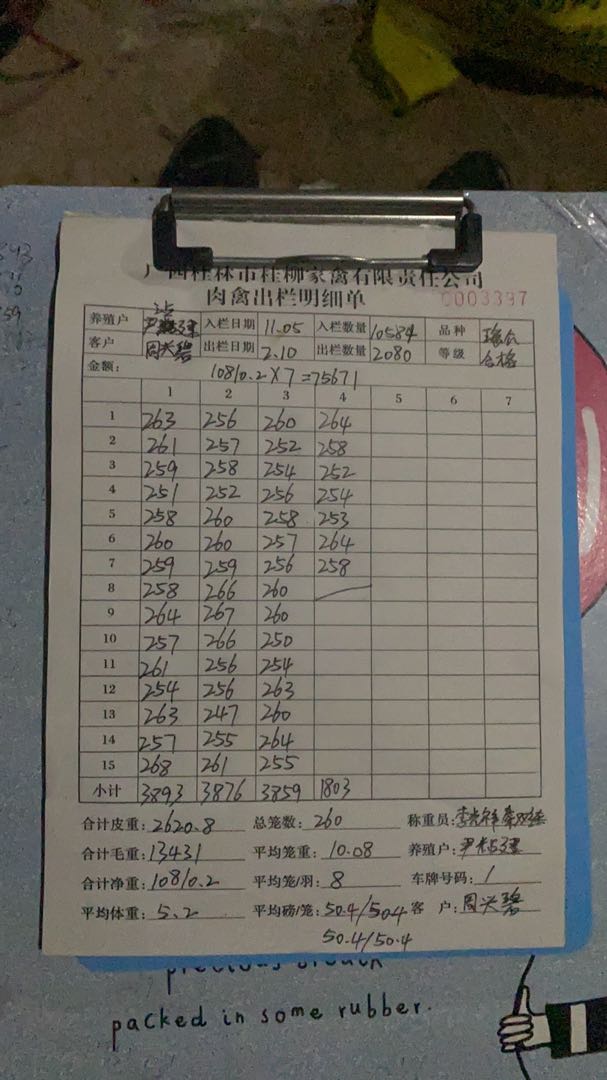 广西桂林市桂柳家禽有限责任公司
肉禽出栏明细单
0003397
养殖户 入栏日期 11.05 入栏数量 10584 品种
客户 周兴碧 出栏日期 2.10 出栏数量 2080 等级 合格
金额: 10810.2×7=75671
1 2 3 4 5 6 7
1 263 256 260 264
2 261 257 252 258
3 259 258 254 252
4 251 252 256 254
5 258 260 258 253
6 260 260 257 264
7 259 259 256 258
8 258 266 260
9 264 267 260
10 257 266 250
11 261 256 254
12 254 256 263
13 263 247 260
14 257 255 264
15 268 261 255
小计 3893 3876 3859 1803
合计皮重: 2620.8 总笼数: 260 称重员:
合计毛重: 13431 平均笼重: 10.08 养殖户:
合计净重: 10810.2 平均笼/羽: 8 车牌号码: /
平均体重: 5.2 平均磅/笼: 50.4/50.4 客户: 周兴碧
50.4/50.4
packed in some rubber.